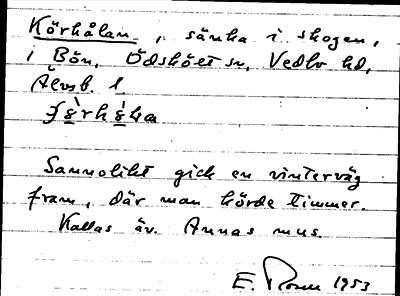 Körhålan, sänka i skogen,
i Bön, Ödskölt sn, Vedbo hd,
Älvsb. l.
Sannolikt gick en vinterväg
fram, där man körde timmer.
Kallas äv. Annas mus.
E. Rosen 1953